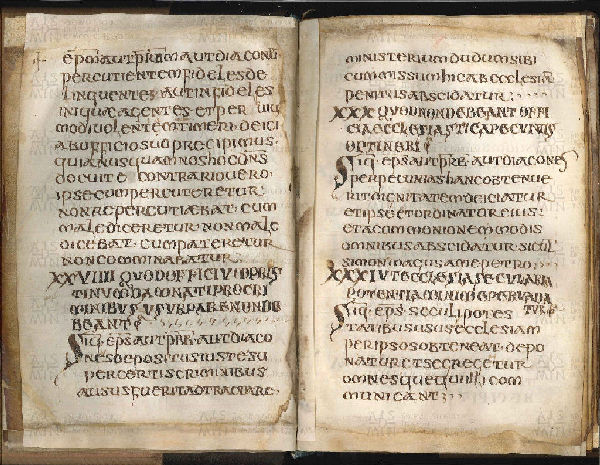 EPM AUT PRBM AUT DIACONU
PERCUTIENTEM FIDELES DE
LINQUENTES AUT INFIDELES
INIQUAE AGENTES ET PER
MODI UOLENTEM TIMERI DEICI
AB OFFICIO SUO PRECIPIMUS
QUIA NUSQUAM NOS HOC DNS
DOCUIT E CONTRARIO UERO
IPSE CUM PERCUTERETUR
NON REPERCUTIAEBAT CUM
MALEDICERETUR NON MALE
DICEBAT CUM PATERETUR
NON COMMINABATUR
XXVIIII QUOD OFFICIUM PRIS
TINUM DAMNATI PROCRI
MINIBUS USURPARE NON DE
BEANT
SIQ EPS AUT PRBR AUT DIACO
NES DEPOSITI SIUSTE SU
PER CERTIS CRIMINIBUS
AUSUS FUERIT ADTRACTARE
MINISTERIUM DUDUM SIBI
CUMMISSUM HIC AB ECCLESIA
PENITUS ABSCIDATUR
XXX QUOD NON DEBEANT OFFI
CIA ECLESIASTICA PECUNIIS
OPTINERI
SIQ EPS AUT PRBR AUT DIACONES
PER PECUNIAS HANC OBTENUE
RIT DIGNITATEM DEICIATUR
ET IPSE ET ORDINATUR EIUS
ET A COMMONIONE MODIS
OMNIBUS ABSCIDATUR SICUT
SIMON MAGUS A ME PETRO
XXXI UT ECCLESIA SECULARIA
POTENTIA MINIME PERUADA
TUR
SIQ EPS SECULI POTES
TATIBUS USUS ECLESIAM
PER IPSOS OBTENEAT DEPO
NATUR ET SECREGETUR
OMNES QUE QUI ILLI COM
MUNICANT